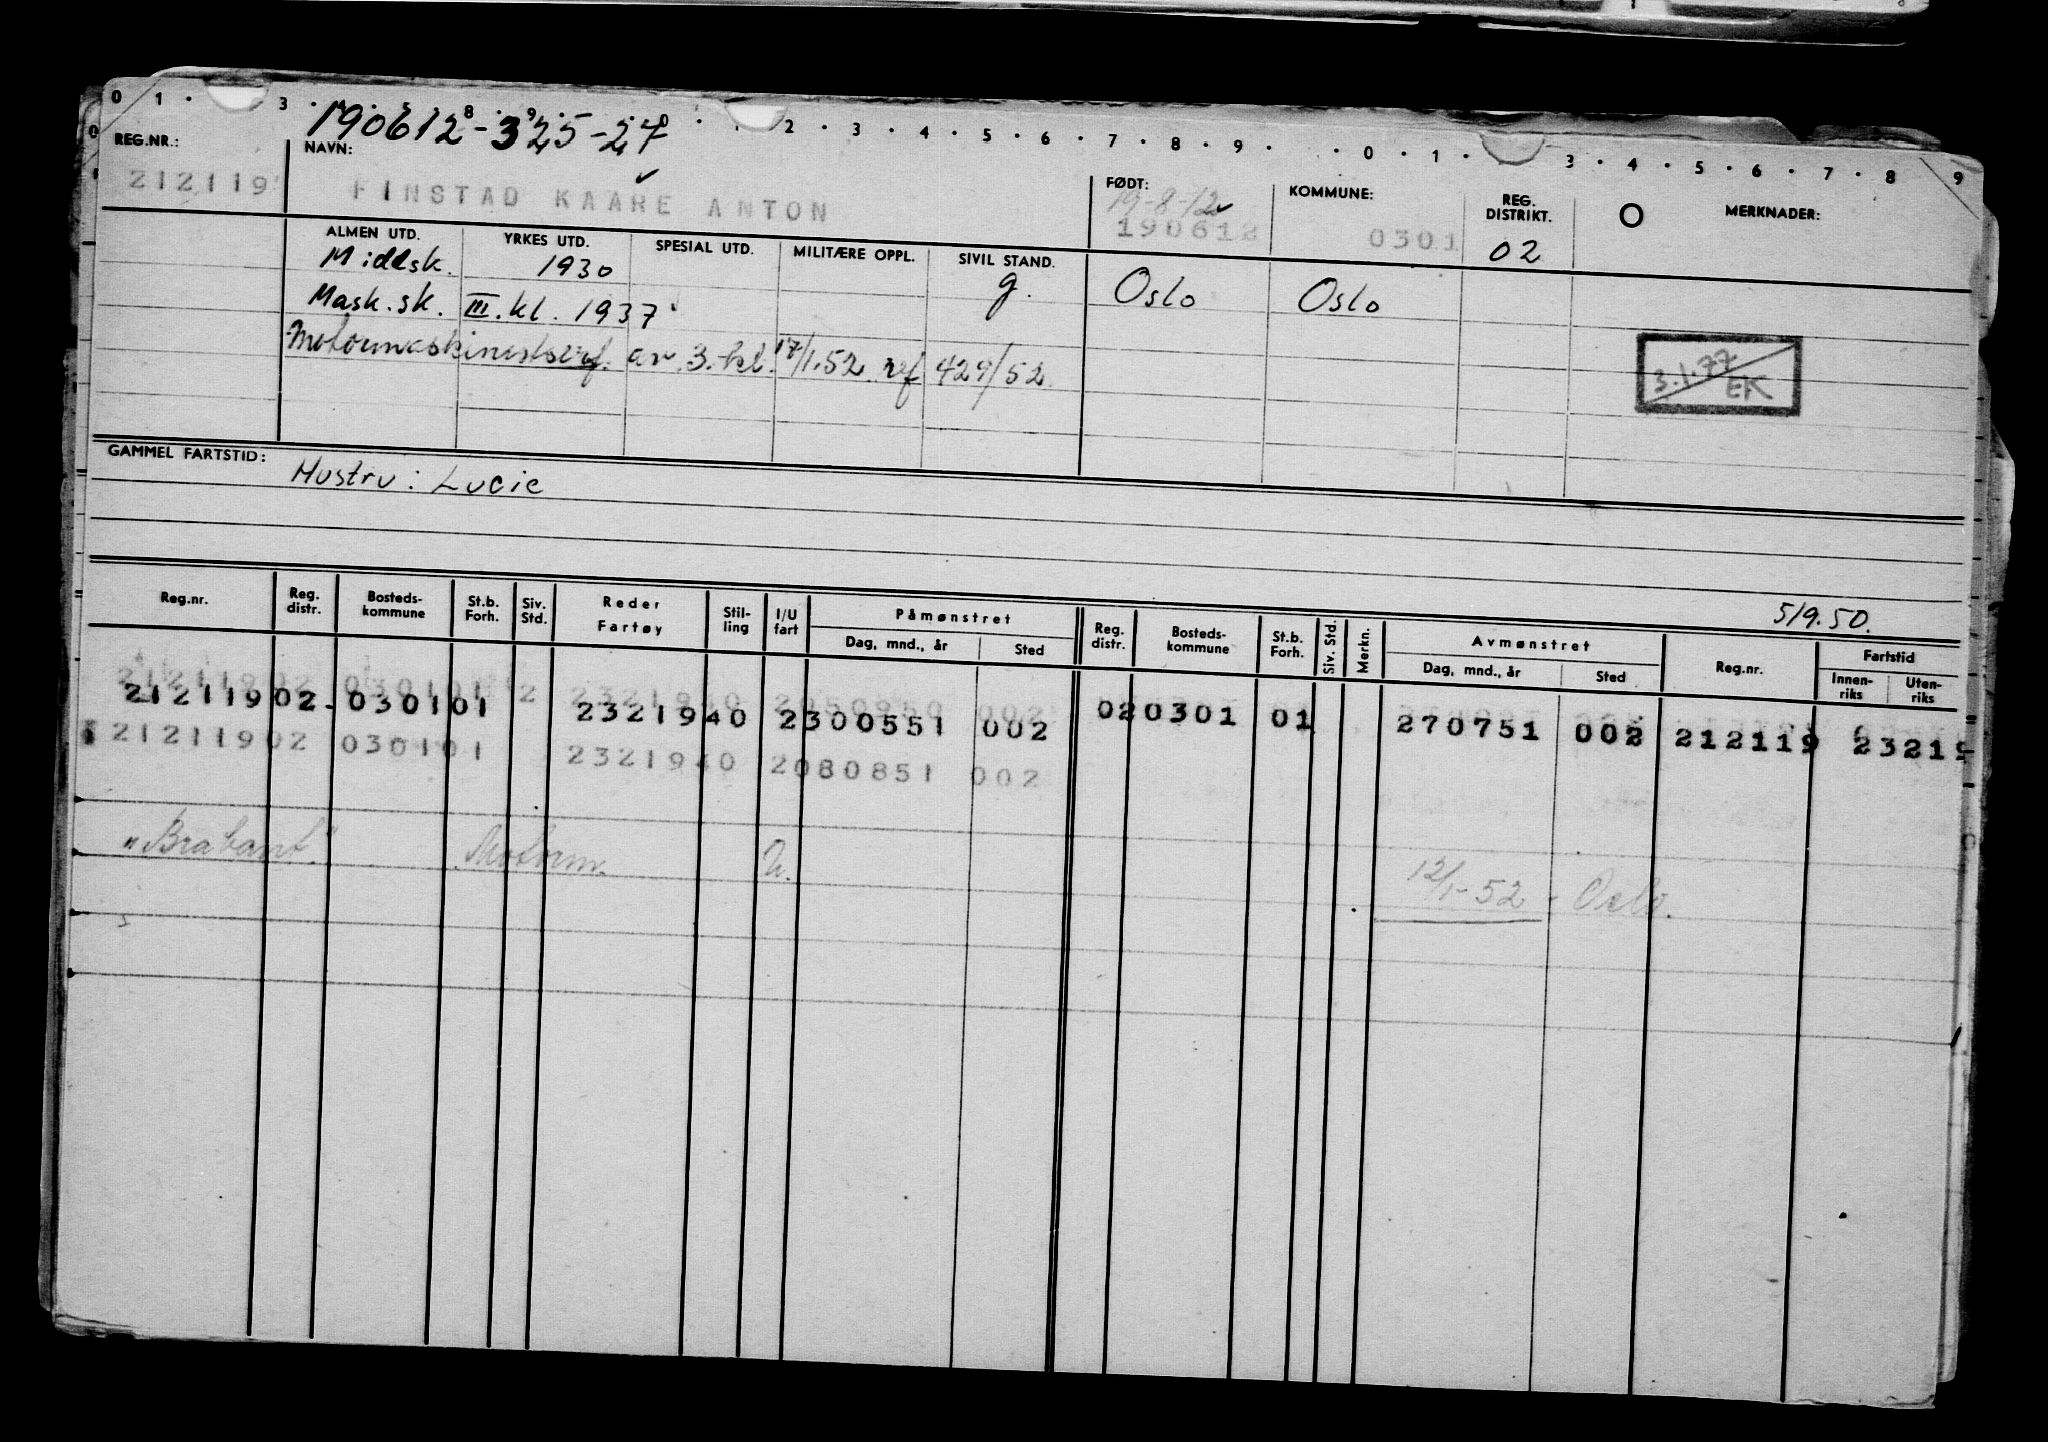 0 1 · 3 · 8 9 · 2 · 3 · 4 · 5 · 6 · 7 · 8 · 9 · · 0 · 1 · 3 · 4 · 5 · 6 · 7 · 8 9
190612-325-27
REG.NR.: NAVN: FØDT: KOMMUNE: REG. DISTRIKT. O MERKNADER:
19-8-12
212119 FINSTAD KAARE ANTON 190612 0301 02
ALMEN UTD. YRKES UTD. SPESIAL UTD. MILITÆRE OPPL. SIVIL STAND.
Middsk. 1930 g. Oslo Oslo
Mask.sk. III.kl. 1937
Motormaskinistsert. av 3.kl. 17/1.52 ref 429/52
3.1.77 EK
GAMMEL FARTSTID: Hustru: Lucie
5/9.50.
Reg.nr. Reg. distr. Bosteds- kommune St.b. Forh. Siv. Std. Reder Fartøy Stil- ling I/U fart Påmønstret Dag, mnd., år Sted Reg. distr. Bosteds- kommune St.b. Forh. Siv. Std. Merkn. Avmønstret Dag, mnd., år Sted Reg.nr. Fartstid Innen- riks Uten- riks
21211902 030101 2 2321940 2050950 002
21211902 030101 2321940 2300551 002 020301 01 270751 002 212119 23219
21211902 030101 2321940 2080851 002
"Brabant" Motorm. U. 12/1-52 - Oslo.